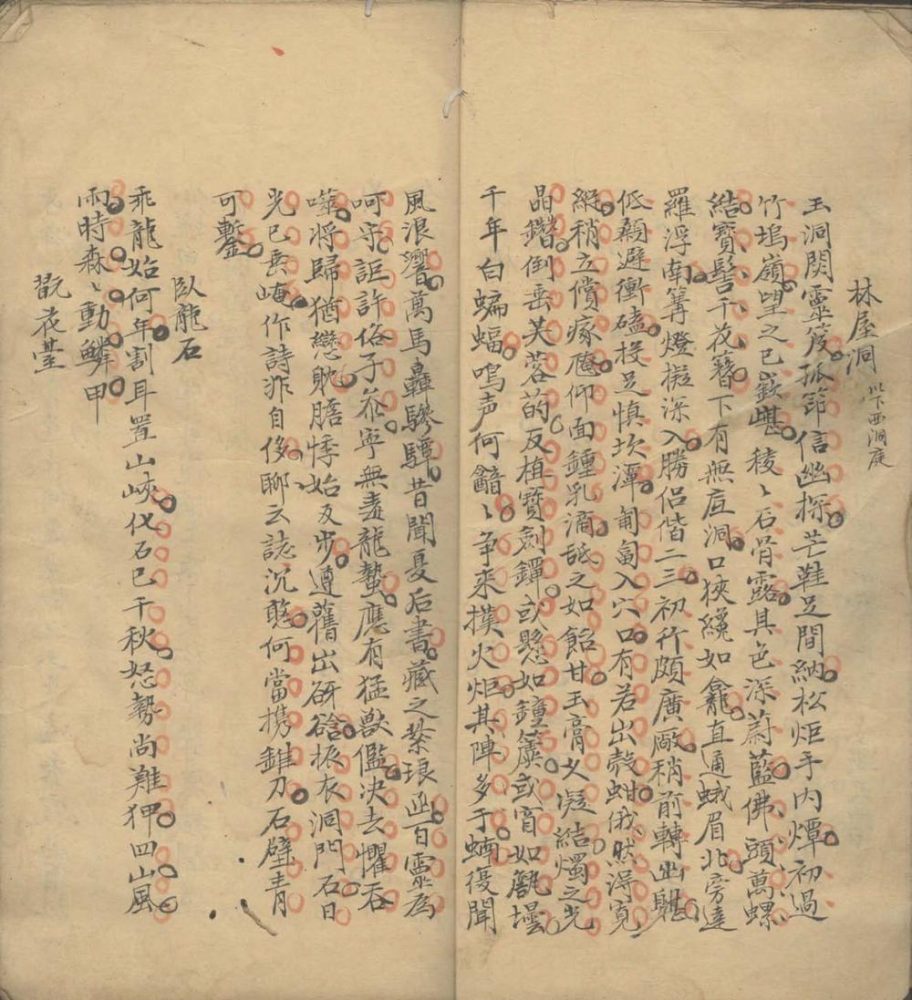 林屋洞 以下西洞庭
玉洞閟靈笈孤節信幽探芒鞋足間納松炬手内燂初過
竹塢嶺望之已嶔嵁稜〻石骨露其色深蔚藍佛頭萬螺
結寶髻千花簪下有無底洞口狹纔如龕直通蛾眉北旁達
羅浮南篝燈擬深入勝侶偕二三初行頗廣厰稍前轉幽
低顛避衝磕投足慎坎潭匍匐入穴口有若出殼蚶俄然得寛
縱稍立償瘃仰面鍾乳滴舐之如飴甘玉膏又凝結燭之光
晶鑽倒垂芙蓉菂反植寶劍鐔或懸如鐘簴或窅如甒壜
千年白蝙蝠鳴声何韽〻争來撲火炬其陣多于蝻復聞
風浪響萬馬轟驂驔昔聞夏后書藏之紫琅函百靈爲
呵守詎許俗子參寧無毒龍蟄應有猛獸儖决去懼吞
噬將歸猶戀眈膽悸始反步遵舊出硏硆振衣洞門石日
光已垂崦作詩非自侈聊云誌沉憨何當携錐刀石壁青
可鏨
臥龍石
乖龍始何年割耳置山峽化石已千秋怒勢尚難狎四山風
雨時森〻動鱗甲
翫花臺